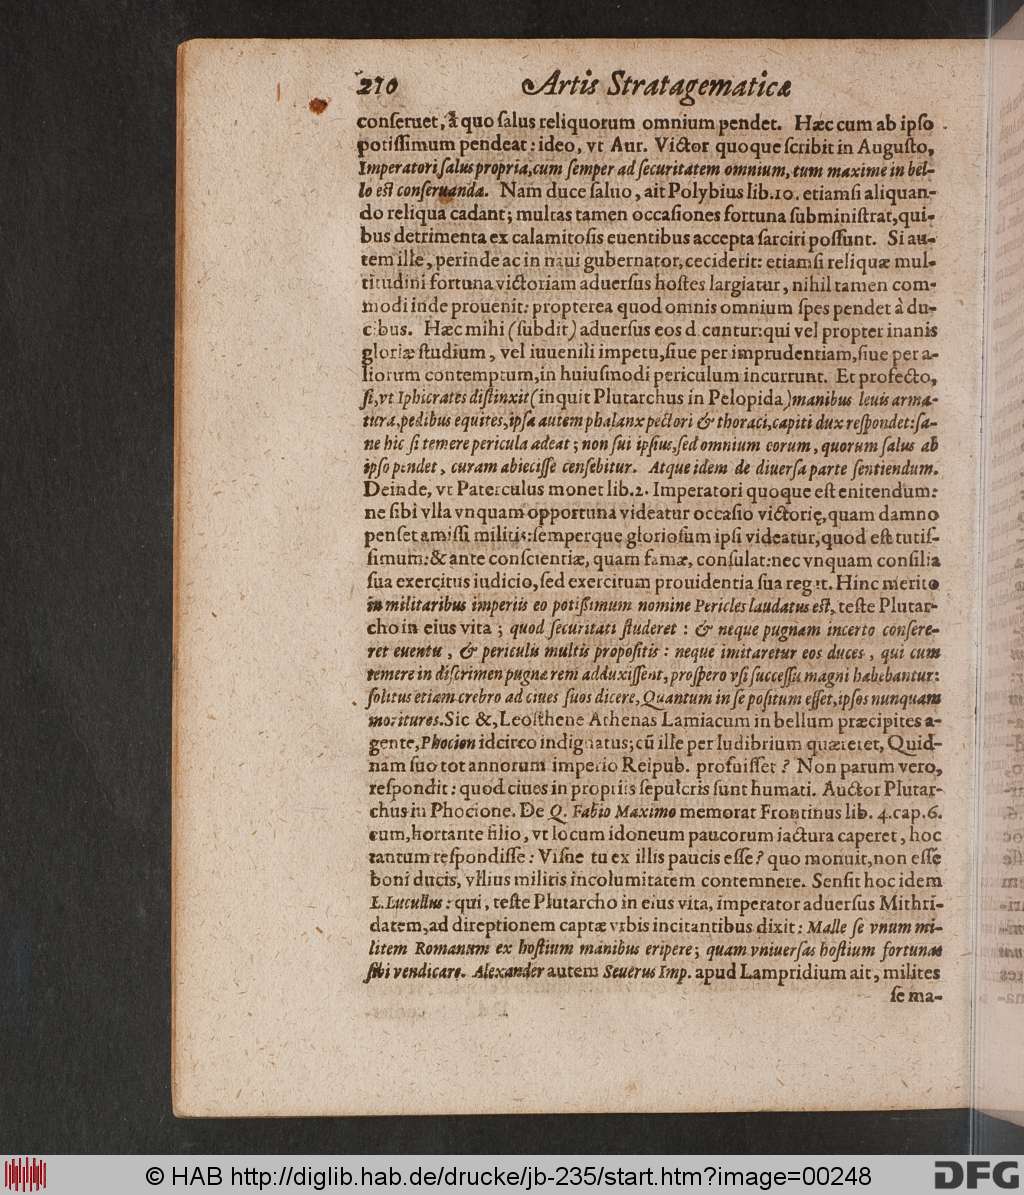 210 Artis Stratagematicæ
conſeruet, à quo ſalus reliquorum omnium pendet. Hæc cum ab ipſo
potiſſimum pendeat: ideo, vt Aur. Victor quoque ſcribit in Auguſto,
Imperatori ſalus propria, cum ſemper ad ſecuritatem omnium, tum maxime in bel-
lo eſt conſeruanda. Nam duce ſaluo, ait Polybius lib. 10. etiamſi aliquan-
do reliqua cadant; multas tamen occaſiones fortuna ſubminiſtrat, qui-
bus detrimenta ex calamitoſis euentibus accepta ſarciri poſſunt. Si au-
tem ille, perinde ac in naui gubernator, ceciderit: etiamſi reliquæ mul-
titudini fortuna victoriam aduerſus hoſtes largiatur, nihil tamen com-
modi inde prouenit: propterea quod omnis omnium ſpes pendet à du-
cibus. Hæc mihi (ſubdit) aduerſus eos dicuntur: qui vel propter inanis
gloriæ ſtudium, vel iuuenili impetu, ſiue per imprudentiam, ſiue per a-
liorum contemptum, in huiuſmodi periculum incurrunt. Et profecto,
ſi, vt Iphicrates diſtinxit (inquit Plutarchus in Pelopida) manibus leuis arma-
tura, pedibus equites, ipſa autem phalanx pectori & thoraci, capiti dux reſpondet: ſa-
ne hic ſi temere pericula adeat; non ſui ipſius, ſed omnium eorum, quorum ſalus ab
ipſo pendet, curam abieciſſe cenſebitur. Atque idem de diuerſa parte ſentiendum.
Deinde, vt Paterculus monet lib. 2. Imperatori quoque eſt enitendum:
ne ſibi vlla vnquam opportuna videatur occaſio victorię, quam damno
penſet amiſſi militis: ſemperque glorioſum ipſi videatur, quod eſt tutiſ-
ſimum: & ante conſcientiæ, quam famæ, conſulat: nec vnquam conſilia
ſua exercitus iudicio, ſed exercitum prouidentia ſua regat. Hinc merito
in militaribus imperiis eo potiſſimum nomine Pericles laudatus eſt, teſte Plutar-
cho in eius vita; quod ſecuritati ſtuderet: & neque pugnam incerto conſere-
ret euentu, & periculis multis propoſitis: neque imitaretur eos duces, qui cum
temere in diſcrimen pugnæ rem adduxiſſent, proſpero vſi ſucceſſu magni habebantur:
ſolitus etiam crebro ad ciues ſuos dicere, Quantum in ſe poſitum eſſet, ipſos nunquam
morituros. Sic &, Leoſthene Athenas Lamiacum in bellum præcipites a-
gente, Phocion idcirco indignatus; cũ ille per ludibrium quæreret, Quid-
nam ſuo tot annorum imperio Reipub. profuiſſet? Non parum vero,
reſpondit: quod ciues in propriis ſepulcris ſunt humati. Auctor Plutar-
chus in Phocione. De Q. Fabio Maximo memorat Frontinus lib. 4. cap. 6.
eum, hortante filio, vt locum idoneum paucorum iactura caperet, hoc
tantum reſpondiſſe: Viſne tu ex illis paucis eſſe? quo monuit, non eſſe
boni ducis, vllius militis incolumitatem contemnere. Senſit hoc idem
L. Lucullus: qui, teſte Plutarcho in eius vita, imperator aduerſus Mithri-
datem, ad direptionem captæ vrbis incitantibus dixit: Malle ſe vnum mi-
litem Romanum ex hoſtium manibus eripere; quam vniuerſas hoſtium fortunas
ſibi vendicare. Alexander autem Seuerus Imp. apud Lampridium ait, milites
ſe ma-
© HAB http://diglib.hab.de/drucke/jb-235/start.htm?image=00248
DFG